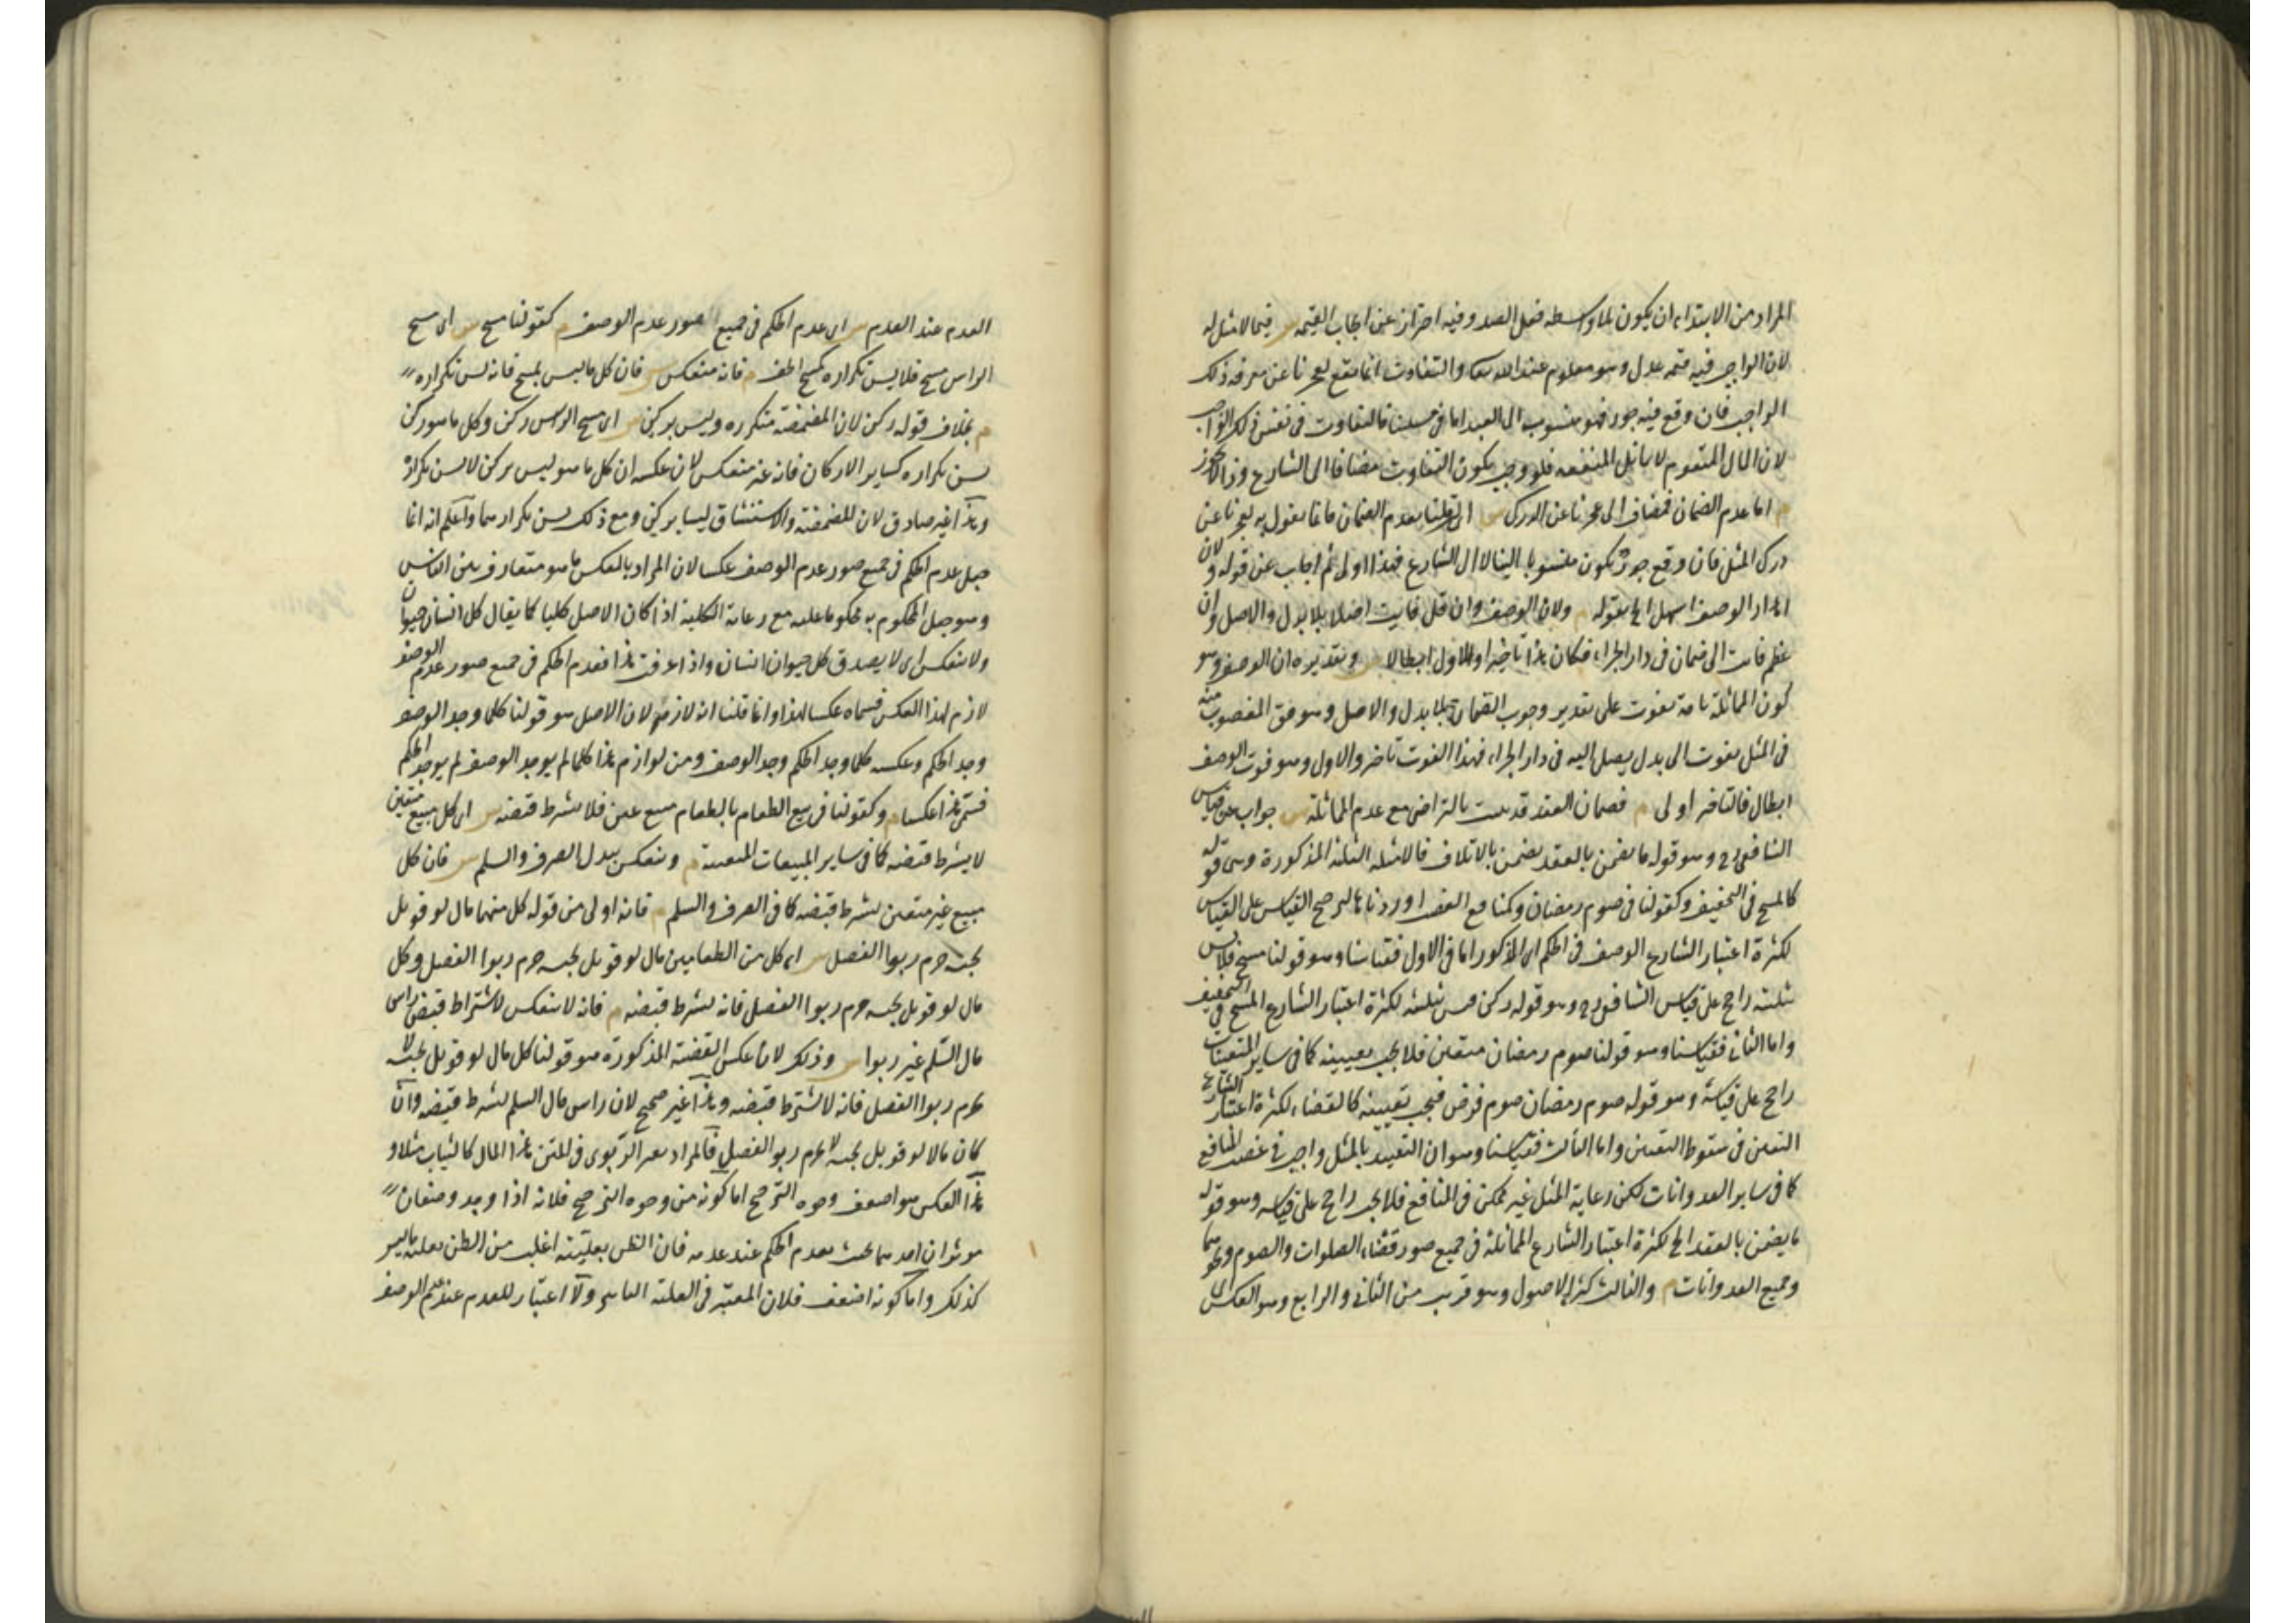 المراد من الابتداء ان يكون بلا واسطه فعل العبد وفيه احتراز عن ايجاب القيمه س فيما لا مثل له
لان الواجب فيه قيمه عدل وهو معلوم عند الله تعا والتفاوت انما يقع لعجزنا عن معرفه ذلك
الواجب فان وقع فيه جور فهو منسوب الى العبد اما في مسئلتنا فالتفاوت في نفس ذلك الواجب
لان المال المتقوم لا يماثل المنفعه فلو وجب يكون التفاوت مضافا الى الشارع وذا لا يجوز
م اما عدم الضمان فمضاف الى عجزنا عن الدرك س اى ان قلنا بعدم الضمان فانما نقول به لعجزنا عن
درك المثل فان وقع جور يكون منسوبا الينا لا الى الشارع فهذا اولى ثم اجاب عن قوله ولان
اهدار الوصف اسهل الخ بقوله م ولان الوصف وان قل فايت اصلا بلا بدل والاصل وان
عظم فات الى ضمان في دار الجزاء فكان هذا تاخيرا والاول ابطالا س وتقديره ان الوصف وهو
كون المماثلة تامة يفوت على تقدير وجوب الضمان بلا بدل والاصل وهو حق المغصوب منه
في المثل يفوت الى بدل يصل اليه في دار الجزاء فهذا الفوت تاخر والاول وهو فوت الوصف
ابطال فالتاخر اولى م فضمان العقد قد يثبت بالتراضى مع عدم المماثلة س جواب عن قياس
الشافعى رح وهو قوله ما يضمن بالعقد يضمن بالاتلاف فالامثله الثلثة المذكورة وهى قوله
كالمسح في التخفيف وكقولنا في صوم رمضان وكمنافع الغصب اوردناها لترجيح القياس على القياس
لكثرة اعتبار الشارع الوصف في الحكم اى المذكور اما في الاول فقياسنا وهو قولنا مسح فلا يسن
تثليثه راجح على قياس الشافعى رح وهو قوله ركن فيسن تثليثه لكثرة اعتبار الشارع المسح في التخفيف
واما الثانى فقياسنا وهو قولنا صوم رمضان متعين فلا يجب تعيينه كما في ساير المتعينات
راجح على قياسه وهو قوله صوم رمضان صوم فرض فيجب تعيينه كالقضاء لكثرة اعتبار الشارع
التعين في سقوط التعيين واما الثالث فقياسنا وهو ان التقييد بالمثل واجب في غصب المنافع
كما في ساير العدوانات لكن رعاية المثل غير ممكن في المنافع فلا يجب راجح على قياسه وهو قوله
ما يضمن بالعقد الخ لكثرة اعتبار الشارع المماثلة في جميع صور قضاء الصلوات والصوم ونحوهما
وجميع العدوانات م والثالث كثرة الاصول وهو قريب من الثانى والرابع وهو العكس اى
العدم عند العدم س اى عدم الحكم في جميع صور عدم الوصف م كقولنا مسح س اى مسح
الراس مسح فلا يسن تكراره كمسح الخف م فانه منعكس س فان كل ما ليس بمسح فانه يسن تكراره
م بخلاف قوله ركن لان المضمضة متكرره وليس بركن س اى مسح الراس ركن وكل ما هو ركن
يسن تكراره كساير الاركان فانه غير منعكس لان عكسه ان كل ما هو ليس بركن لا يسن تكراره
وهذا غير صادق لان المضمضة والاستنشاق ليسا بركن ومع ذلك يسن تكرارهما واعلم انه انما
جعل عدم الحكم في جميع صور عدم الوصف عكسا لان المراد بالعكس ما هو متعارف بين الناس
وهو جعل المحكوم به محكوما عليه مع رعاية الكلية اذا كان الاصل كليا كما يقال كل انسان حيوان
ولا ينعكس اى لا يصدق كل حيوان انسان واذا عرفت هذا فعدم الحكم في جميع صور عدم الوصف
لازم لهذا العكس فسماه عكسا لهذا وانما قلنا انه لازم له لان الاصل هو قولنا كلما وجد الوصف
وجد الحكم وعكسه كلما وجد الحكم وجد الوصف ومن لوازم هذا كلما لم يوجد الوصف لم يوجد الحكم
فسمى هذا عكسا م وكقولنا في بيع الطعام بالطعام مبيع عين فلا يشرط قبضه س اى كل مبيع متعين
لا يشرط قبضه كما في ساير المبيعات المتعينة م وينعكس ببدل الصرف والسلم س فان كل
مبيع غير متعين يشرط قبضه كما في الصرف والسلم م فانه اولى من قوله كل منهما مال لو قوبل
بجنسه حرم ربوا الفضل س اى كل من الطعامين مال لو قوبل بجنسه حرم ربوا الفضل وكل
مال لو قوبل بجنسه حرم ربوا الفضل فانه يشرط قبضه م فانه لا ينعكس لاشتراط قبض راس
مال السلم غير ربوا س وذلك لان عكس القضية المذكورة هو قولنا كل مال لو قوبل بجنسه لا
يحرم ربوا الفضل فانه لا يشترط قبضه وهذا غير صحيح لان راس مال السلم يشرط قبضه وان
كان مالا لو قوبل بجنسه لا يحرم ربوا الفضل فالمراد بغير الربوى في المتن هذا المال كالثياب مثلا و
هذا العكس هو اضعف وجوه الترجيح اما كونه من وجوه الترجيح فلانه اذا وجد وصفان
موثران احدهما بحيث يعدم الحكم عند عدمه فان الظن بعليته اغلب من الظن بعلية ما ليس
كذلك واما كونه اضعف فلان المعتبر في العلية التاثير ولا اعتبار للعدم عند عدم الوصف